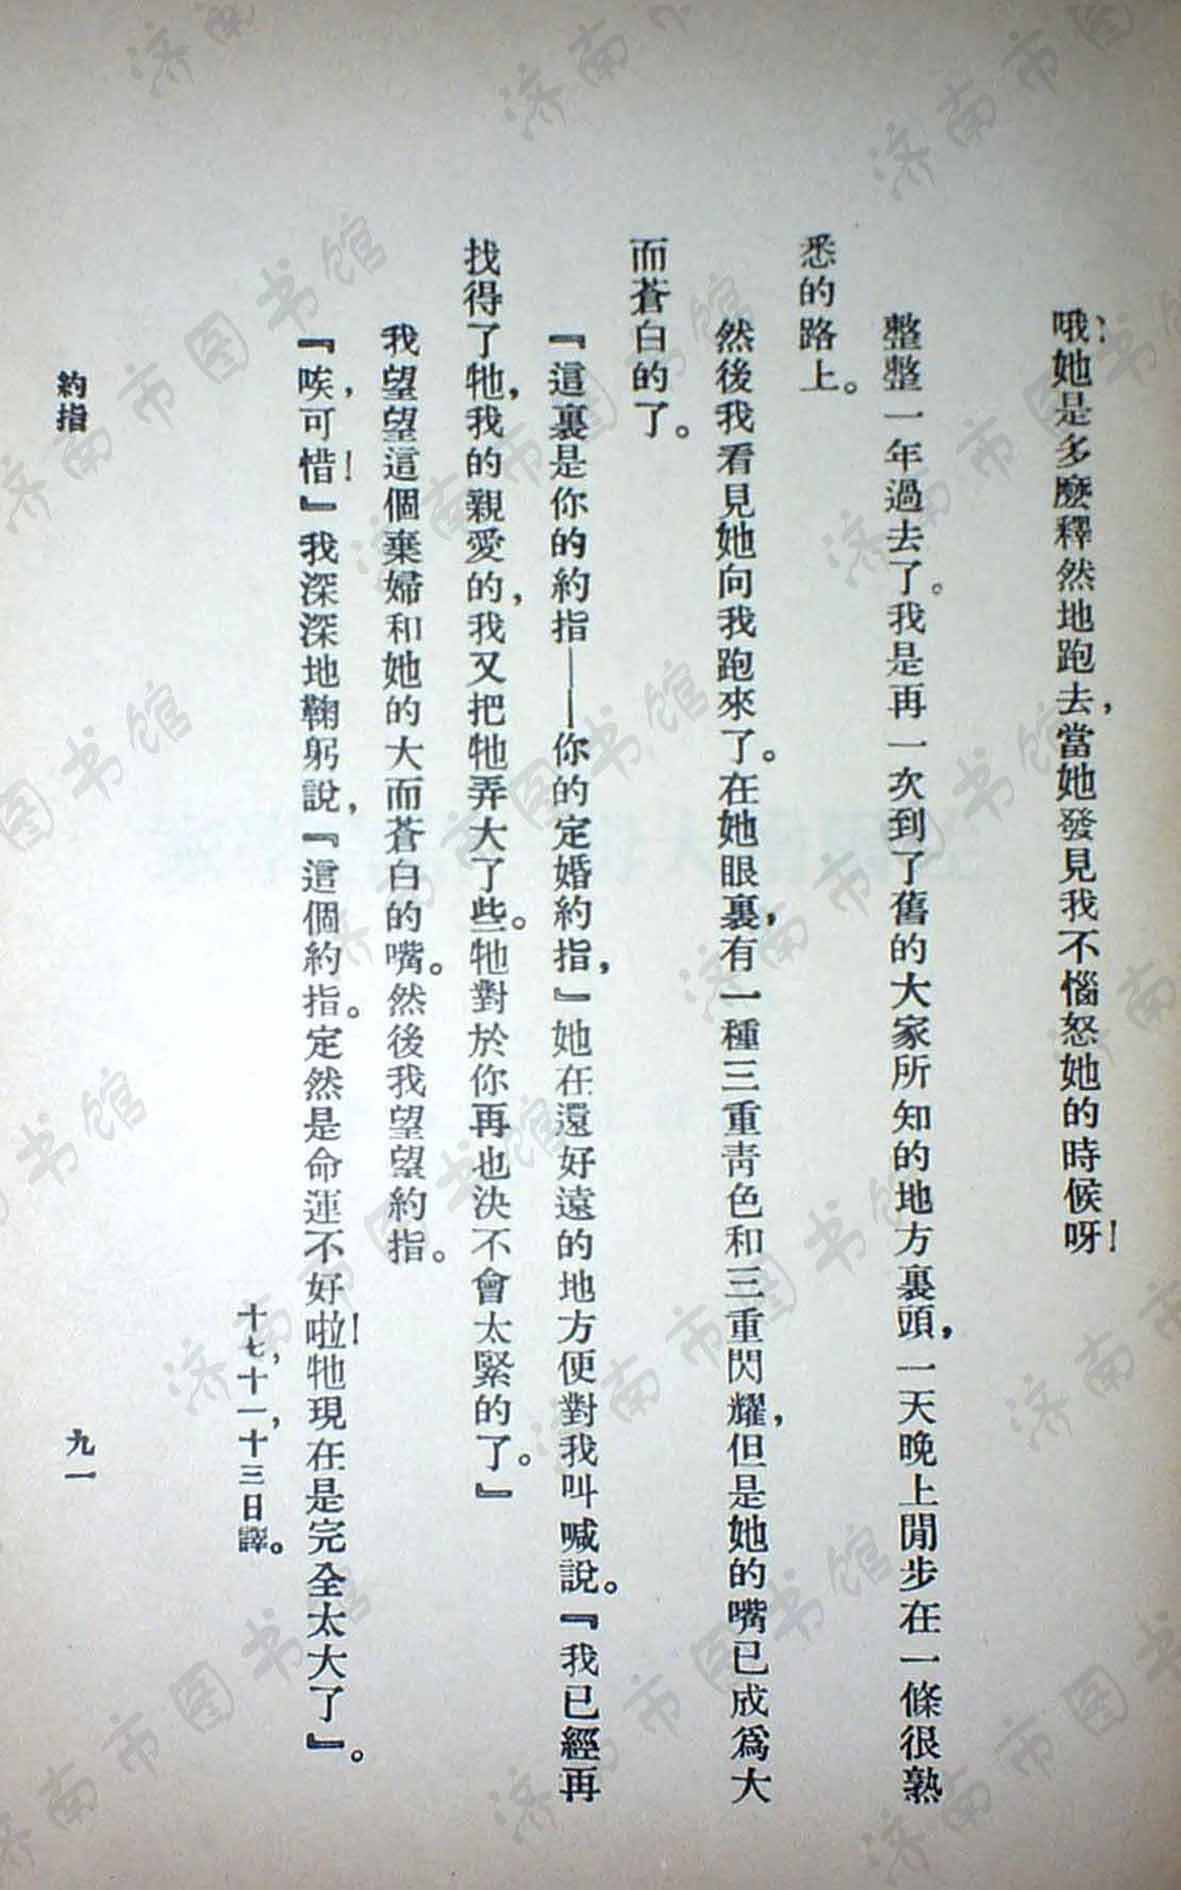 哦,她是多麽釋然地跑去,當她發見我不惱怒她的時候呀!
整整一年過去了。我是再一次到了舊的大家所知的地方裏頭,一天晚上閒步在一條很熟
悉的路上。
然後我看見她向我跑來了。在她眼裏,有一種三重靑色和三重閃耀,但是她的嘴已成爲大
而蒼白的了。
『這裏是你的約指——你的定婚約指,』她在還好遠的地方便對我叫喊說。『我已經再
找得了牠,我的親愛的,我又把牠弄大了些。牠對於你再也決不會太緊的了。』
我望望這個棄婦和她的大而蒼白的嘴。然後我望望約指。
『唉,可惜!』我深深地鞠躬說,『這個約指。定然是命運不好啦!牠現在是完全太大了』。
十七,十一,十三日譯。
約指
九一
济南市图书馆